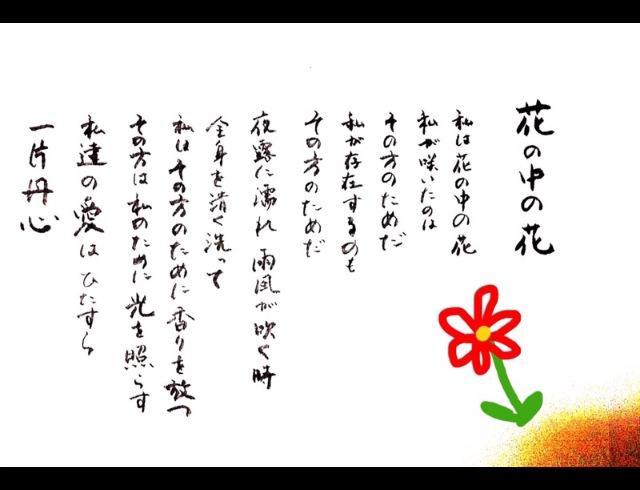 花の中の花
私は花の中の花
私が咲いたのは
その方のためだ
私が存在するのも
その方のためだ
夜露に濡れ 雨風が吹く時
全身を清く洗って
私はその方のために香りを放つ
その方は私のために光を照らす
私達の愛は ひたすら
一片丹心